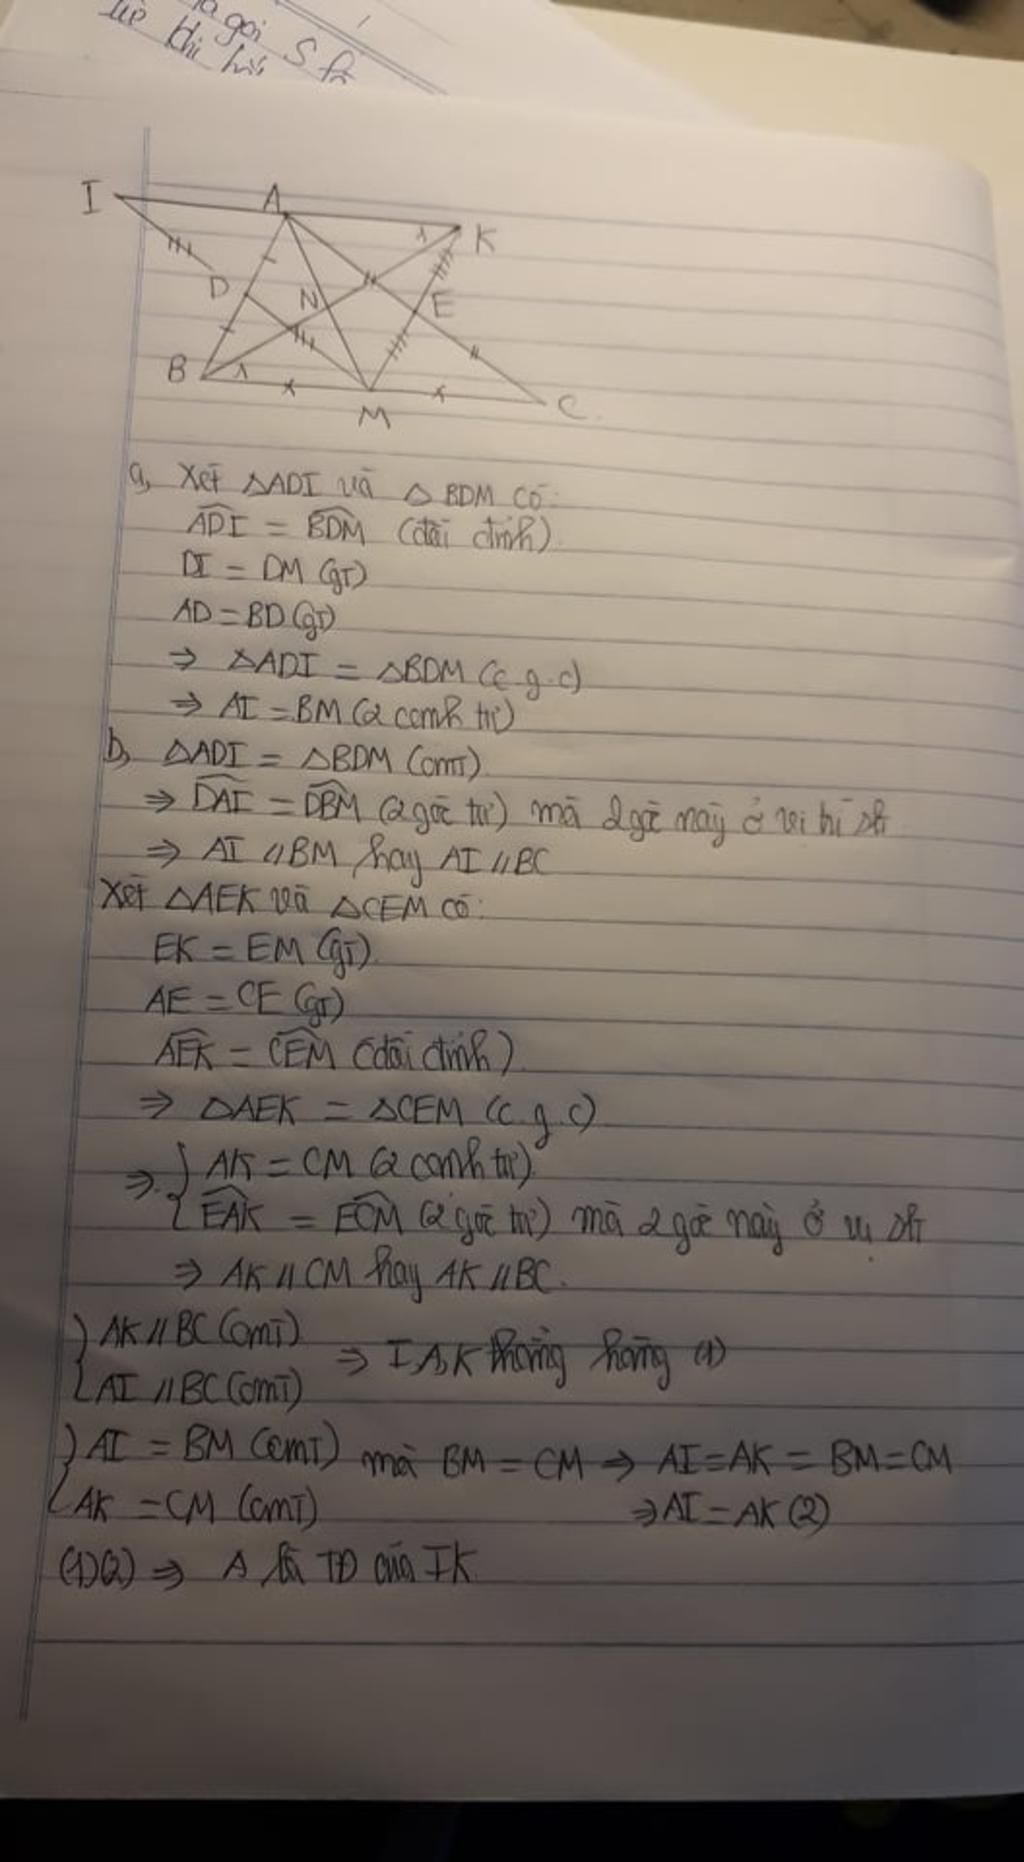 gọi S
khi
I A K
D N E
B M C
a, Xét △ADI và △BDM có:
ADI = BDM (đối đỉnh)
DI = DM (gt)
AD = BD (gt)
⇒ △ADI = △BDM (c.g.c)
⇒ AI = BM (2 cạnh tư)
b, △ADI = △BDM (cmt)
⇒ DAI = DBM (2 góc tư) mà 2 góc này ở vị trí slt
⇒ AI // BM hay AI // BC
Xét △AEK và △CEM có:
EK = EM (gt)
AE = CE (gt)
AEK = CEM (đối đỉnh)
⇒ △AEK = △CEM (c.g.c)
⇒ { AK = CM (2 cạnh tư)
EAK = ECM (2 góc tư) mà 2 góc này ở vị slt
⇒ AK // CM hay AK // BC.
{ AK // BC (cmt) ⇒ I A, K thẳng hàng (1)
AI // BC (cmt)
{ AI = BM (cmt) mà BM = CM ⇒ AI = AK = BM = CM
AK = CM (cmt) ⇒ AI = AK (2)
(1)(2) ⇒ A là TĐ của IK